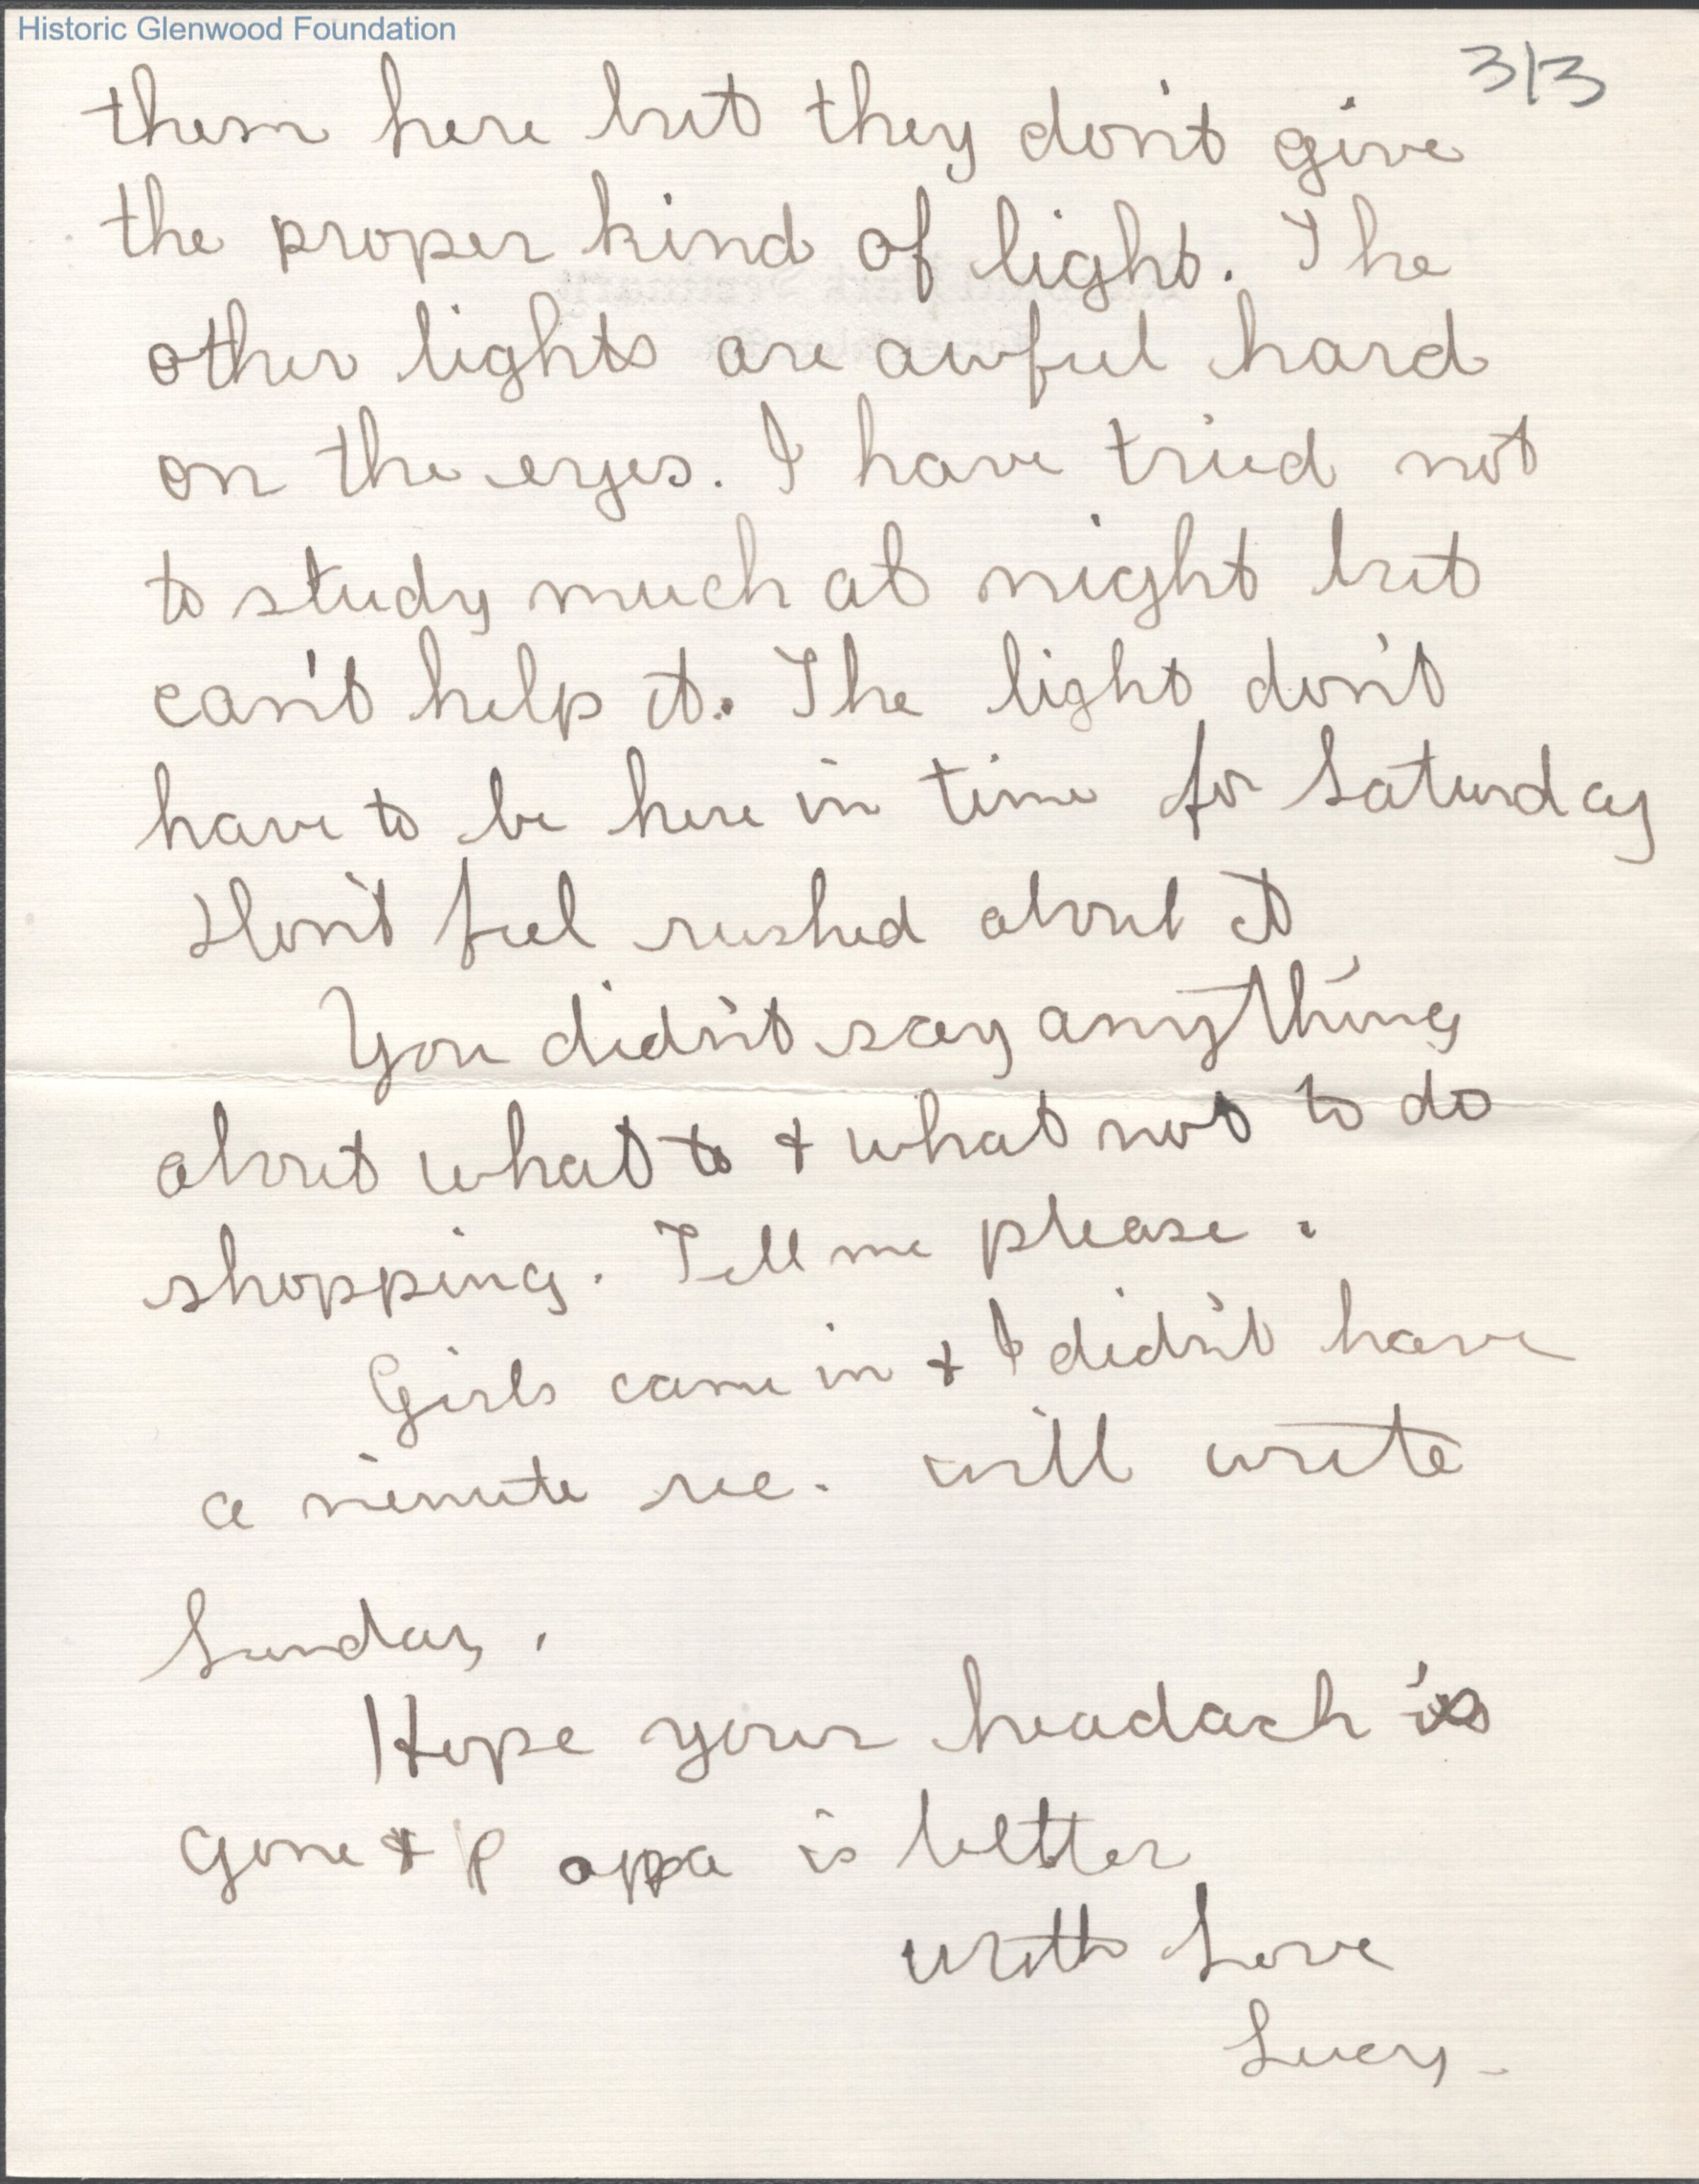 Historic Glenwood Foundation
3/3
them here but they don't give
the proper kind of light. The
other lights are awful hard
on the eyes. I have tried not
to study much at night but
can't help it. The light don't
have to be here in time for Saturday
Don't feel rushed about it
You didn't say anything
about what to + what not to do
shopping. Tell me please.
Girls came in + I didn't have
a minute rec. will write
Sunday.
Hope your headach is
gone + Poppa is better
With Love
Lucy -